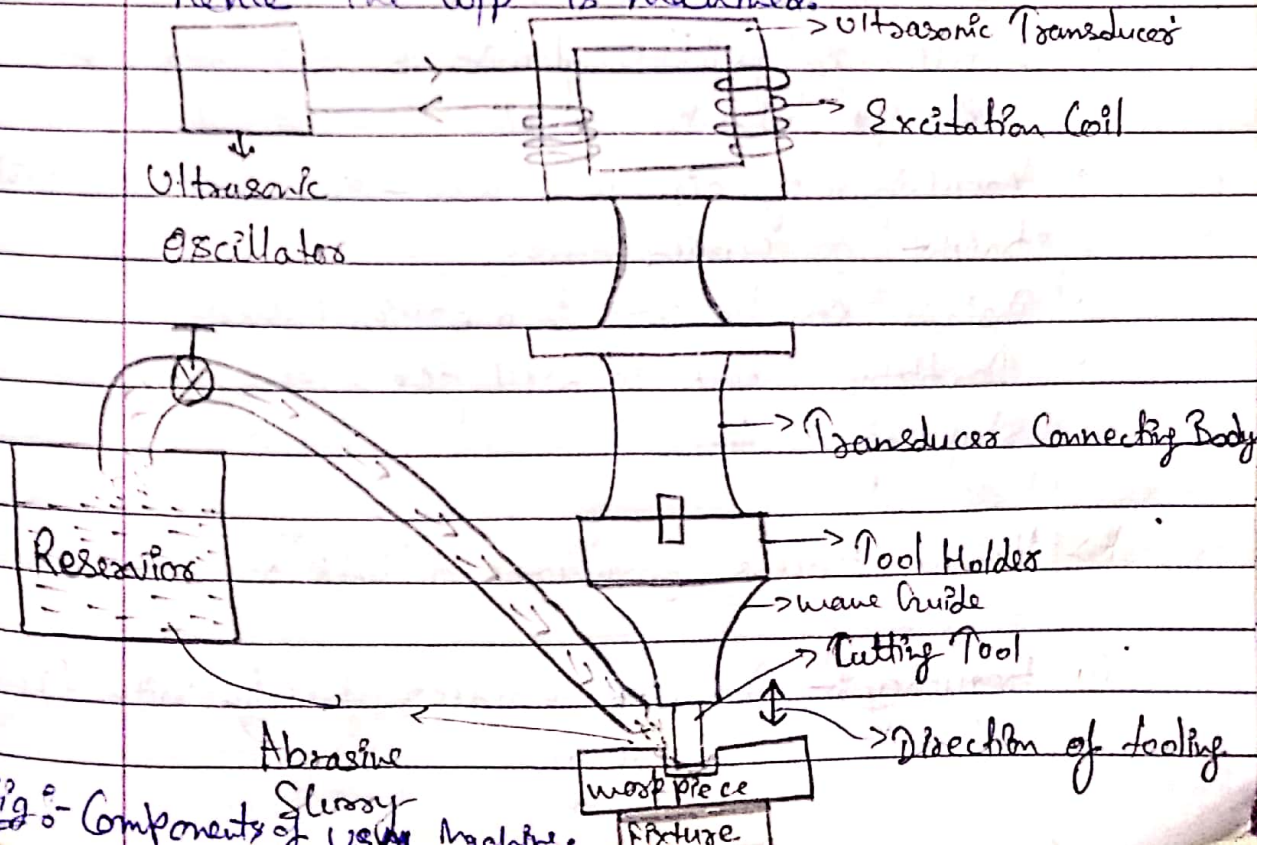 Hence the w/p is machined.
Ultrasonic Transducer
Excitation Coil
Ultrasonic
Oscillator
Transducer Connecting Body
Reservior
Tool Holder
wave Guide
Cutting Tool
Direction of tooling
Abrasive
Slurry
workpiece
Fixture
Fig :- Components of USM Machine.